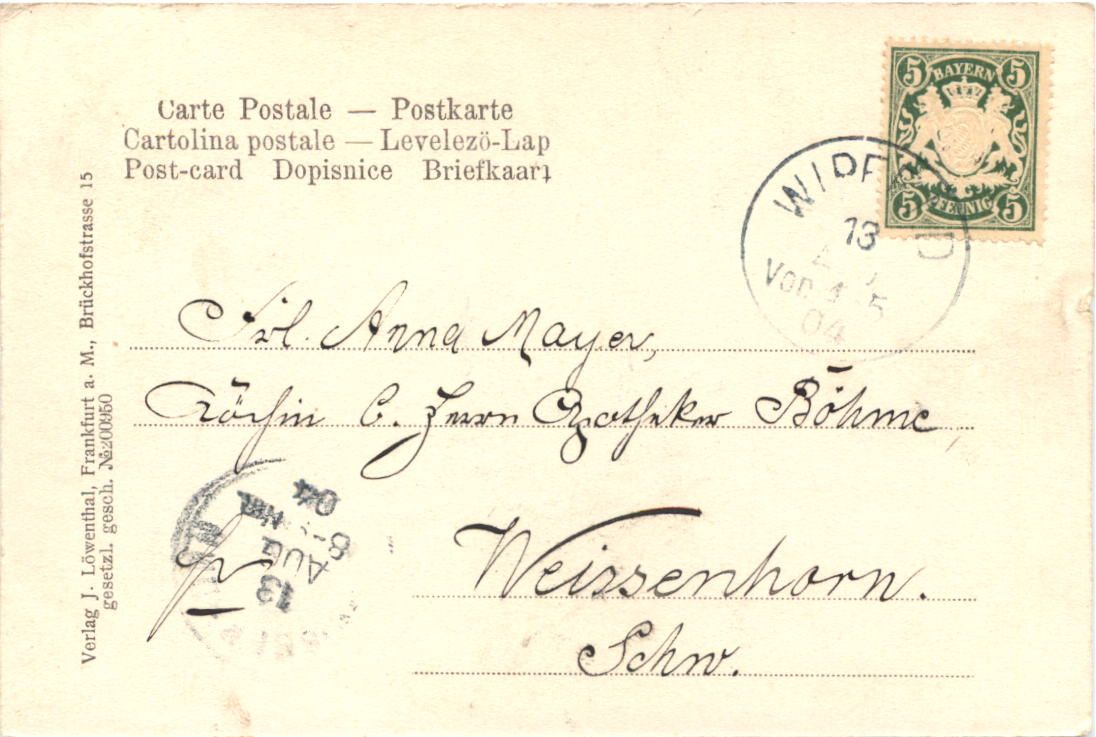 Carte Postale — Postkarte
Cartolina postale — Levelezö-Lap
Post-card Dopisnice Briefkaart
5 BAYERN 5
5 PFENNIG 5
13
Vor. 4-5
04
Frl. Anna Mayer,
Köchin b. Herrn Apotheker Böhme,
Weissenhorn.
Schw.
13
AUG
8
04
Verlag J. Löwenthal, Frankfurt a. M., Brückhofstrasse 15
gesetzl. gesch. №200950